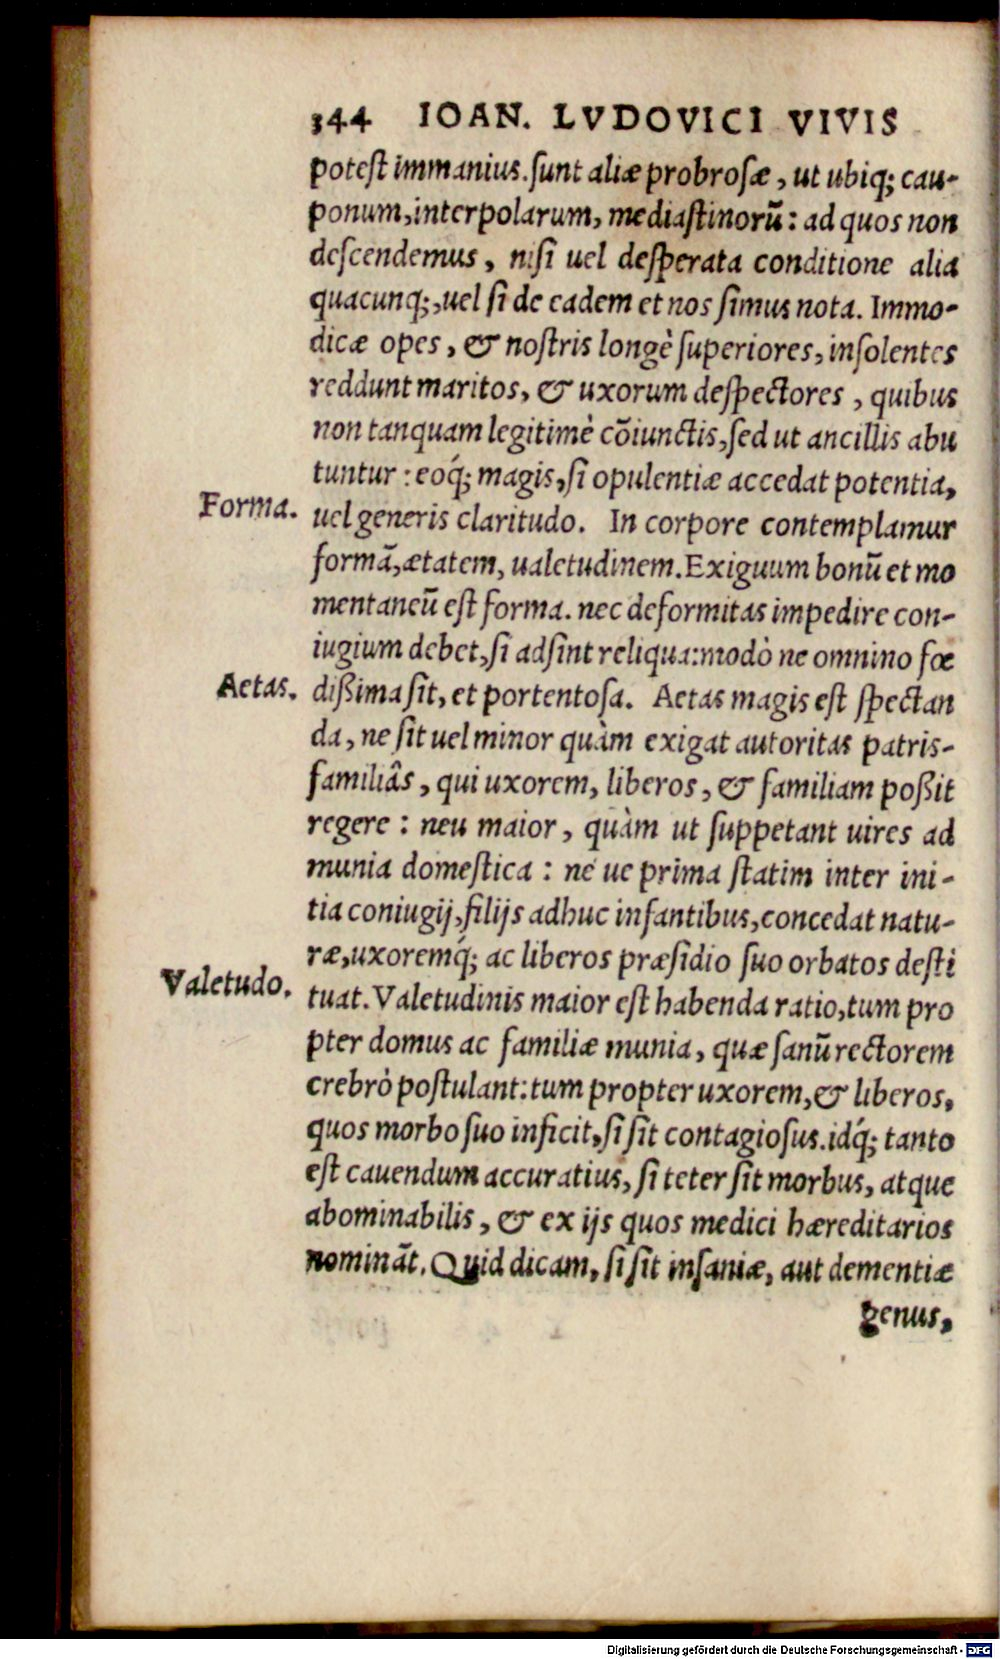 344 IOAN. LVDOVICI VIVIS
potest immanius. sunt aliæ probrosæ, ut ubiq; cau-
ponum, interpolarum, mediastinorũ: ad quos non
descendemus, nisi uel desperata conditione alia
quacunq;, uel si de eadem et nos simus nota. Immo-
dicæ opes, & nostris longè superiores, insolentes
reddunt maritos, & uxorum despectores, quibus
non tanquam legitimè cõiunctis, sed ut ancillis abu
tuntur: eoq́; magis, si opulentiæ accedat potentia,
Forma. uel generis claritudo. In corpore contemplamur
formã, ætatem, ualetudinem. Exiguum bonũ et mo
mentaneũ est forma. nec deformitas impedire con-
iugium debet, si adsint reliqua: modò ne omnino fœ
Aetas. dißima sit, et portentosa. Aetas magis est spectan
da, ne sit uel minor quàm exigat autoritas patris-
familiâs, qui uxorem, liberos, & familiam poßit
regere: neu maior, quàm ut suppetant uires ad
munia domestica: né ue prima statim inter ini-
tia coniugij, filijs adhuc infantibus, concedat natu-
ræ, uxoremq́; ac liberos præsidio suo orbatos desti
Valetudo. tuat. Valetudinis maior est habenda ratio, tum pro
pter domus ac familiæ munia, quæ sanũ rectorem
crebrò postulant: tum propter uxorem, & liberos,
quos morbo suo inficit, si sit contagiosus. idq́; tanto
est cauendum accuratius, si teter sit morbus, atque
abominabilis, & ex ijs quos medici hæreditarios
nominãt. Quid dicam, si sit insaniæ, aut dementiæ
genus,
Digitalisierung gefördert durch die Deutsche Forschungsgemeinschaft - DFG